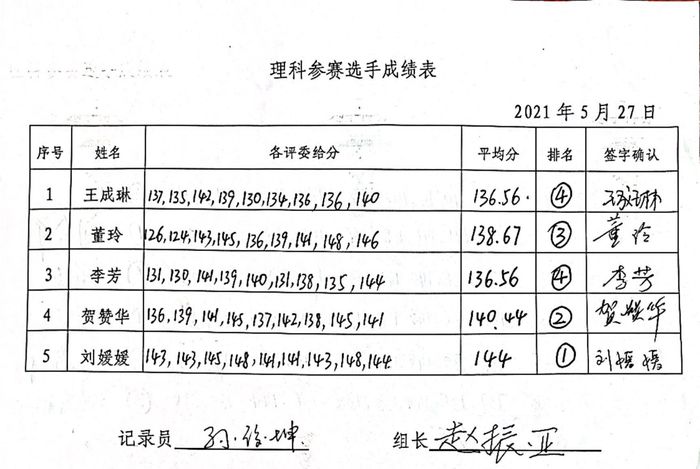 理科参赛选手成绩表
2021 年 5 月 27 日
序号 姓名 各评委给分 平均分 排名 签字确认
1 王成琳 137,135,142,139,130,134,136,136,140 136.56 ④
2 董玲 126,124,143,145,136,139,141,148,146 138.67 ③ 董玲
3 李芳 131,130,141,139,140,131,138,135,144 136.56 ④ 李芳
4 贺赞华 136,139,141,145,137,142,138,145,141 140.44 ② 贺赞华
5 刘媛媛 143,143,145,148,141,141,143,148,144 144 ① 刘媛媛
记录员 组长 赵振亚